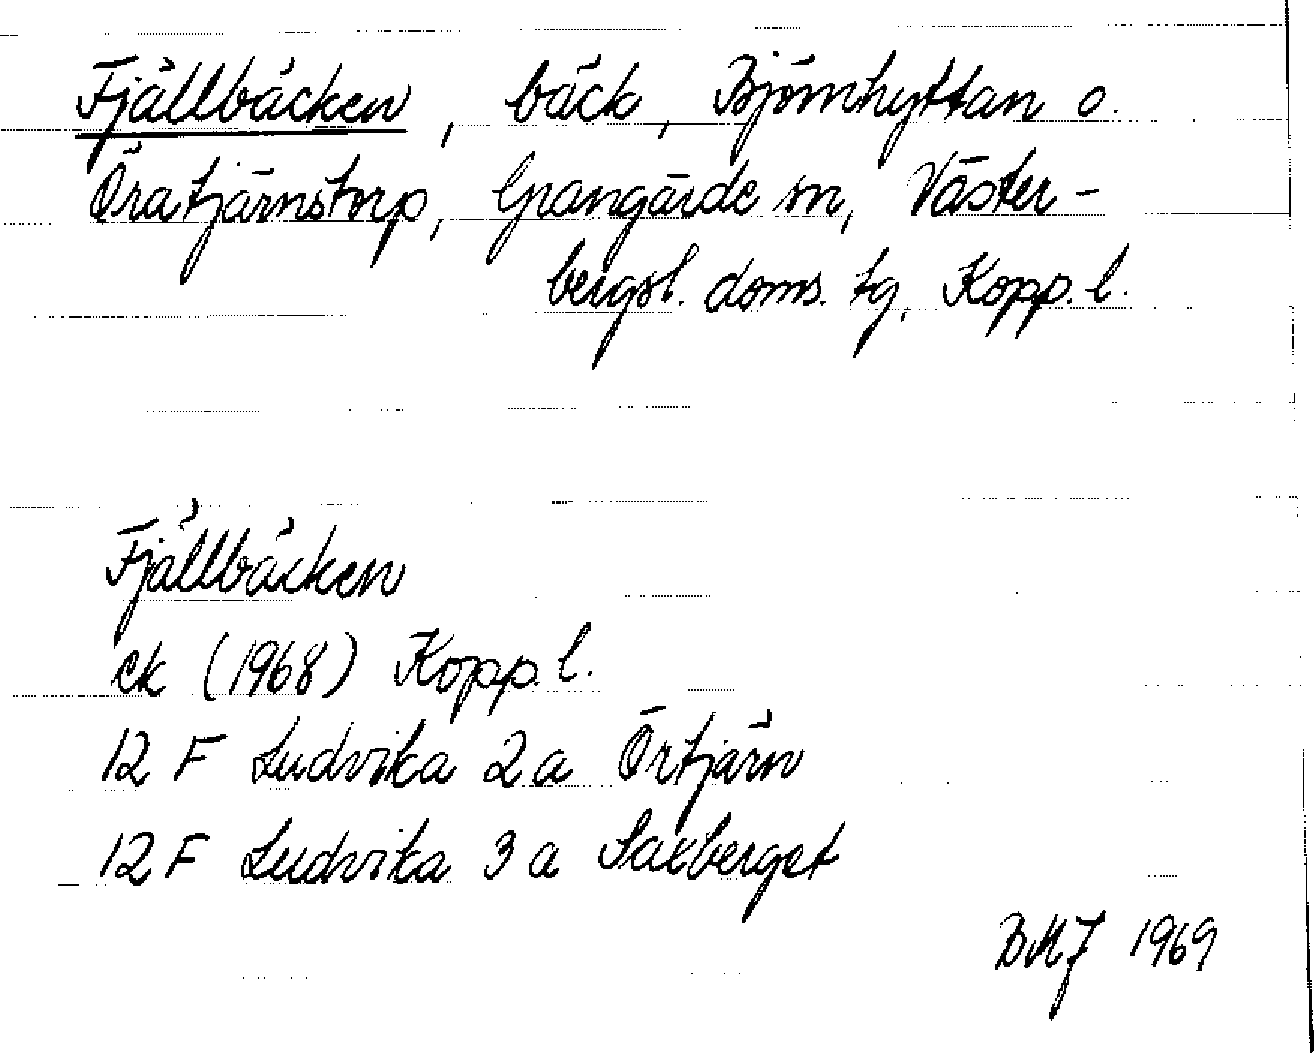 Fjällbäcken, bäck, Björnhyttan o.
Öratjärnstorp, Grangärde sn, Väster-
bergsl. doms. tg, Kopp. l.
Fjällbäcken
ek (1968) Kopp. l.
12 F Ludvika 2 a Örtjärn
12 F Ludvika 3 a Saxberget
BMJ 1969